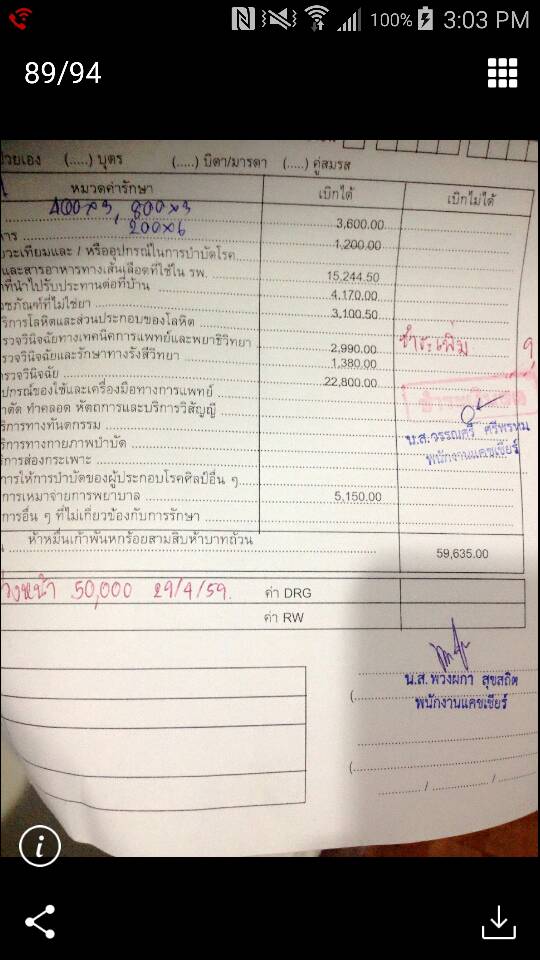 100% 3:03 PM
89/94
(.....) บุตร (.....) บิดา/มารดา (.....) คู่สมรส
หมวดค่ารักษา เบิกได้ เบิกไม่ได้
400x3, 800x3 3,600.00
200x6 1,200.00
และ / หรืออุปกรณ์ในการบำบัดโรค
และสารอาหารทางเส้นเลือดที่ใช้ใน รพ. 15,244.50
ที่นำไปรับประทานต่อที่บ้าน 4,170.00
ที่ไม่ใช่ยา 3,100.50
ริการโลหิตและส่วนประกอบของโลหิต
รวจวินิจฉัยทางเทคนิคการแพทย์และพยาธิวิทยา 2,990.00 ชำระเพิ่ม 9,
รวจวินิจฉัยและรักษาทางรังสีวิทยา 1,380.00
รวจวินิจฉัย 22,800.00
ปกรณ์ของใช้และเครื่องมือทางการแพทย์
าตัด ทำคลอด หัตถการและบริการวิสัญญี
ริการทางทันตกรรม น.ส.วรรณศรี ศรีพรหม
ริการทางกายภาพบำบัด พนักงานแคชเชียร์
ริการส่องกระเพาะ
การให้การบำบัดของผู้ประกอบโรคศิลป์อื่น ๆ
การเหมาจ่ายการพยาบาล 5,150.00
การอื่น ๆ ที่ไม่เกี่ยวข้องกับการรักษา
ห้าหมื่นเก้าพันหกร้อยสามสิบห้าบาทถ้วน 59,635.00
วงหน้า 50,000 29/4/59. ค่า DRG
ค่า RW
น.ส.พวงผกา สุขสถิต
พนักงานแคชเชียร์